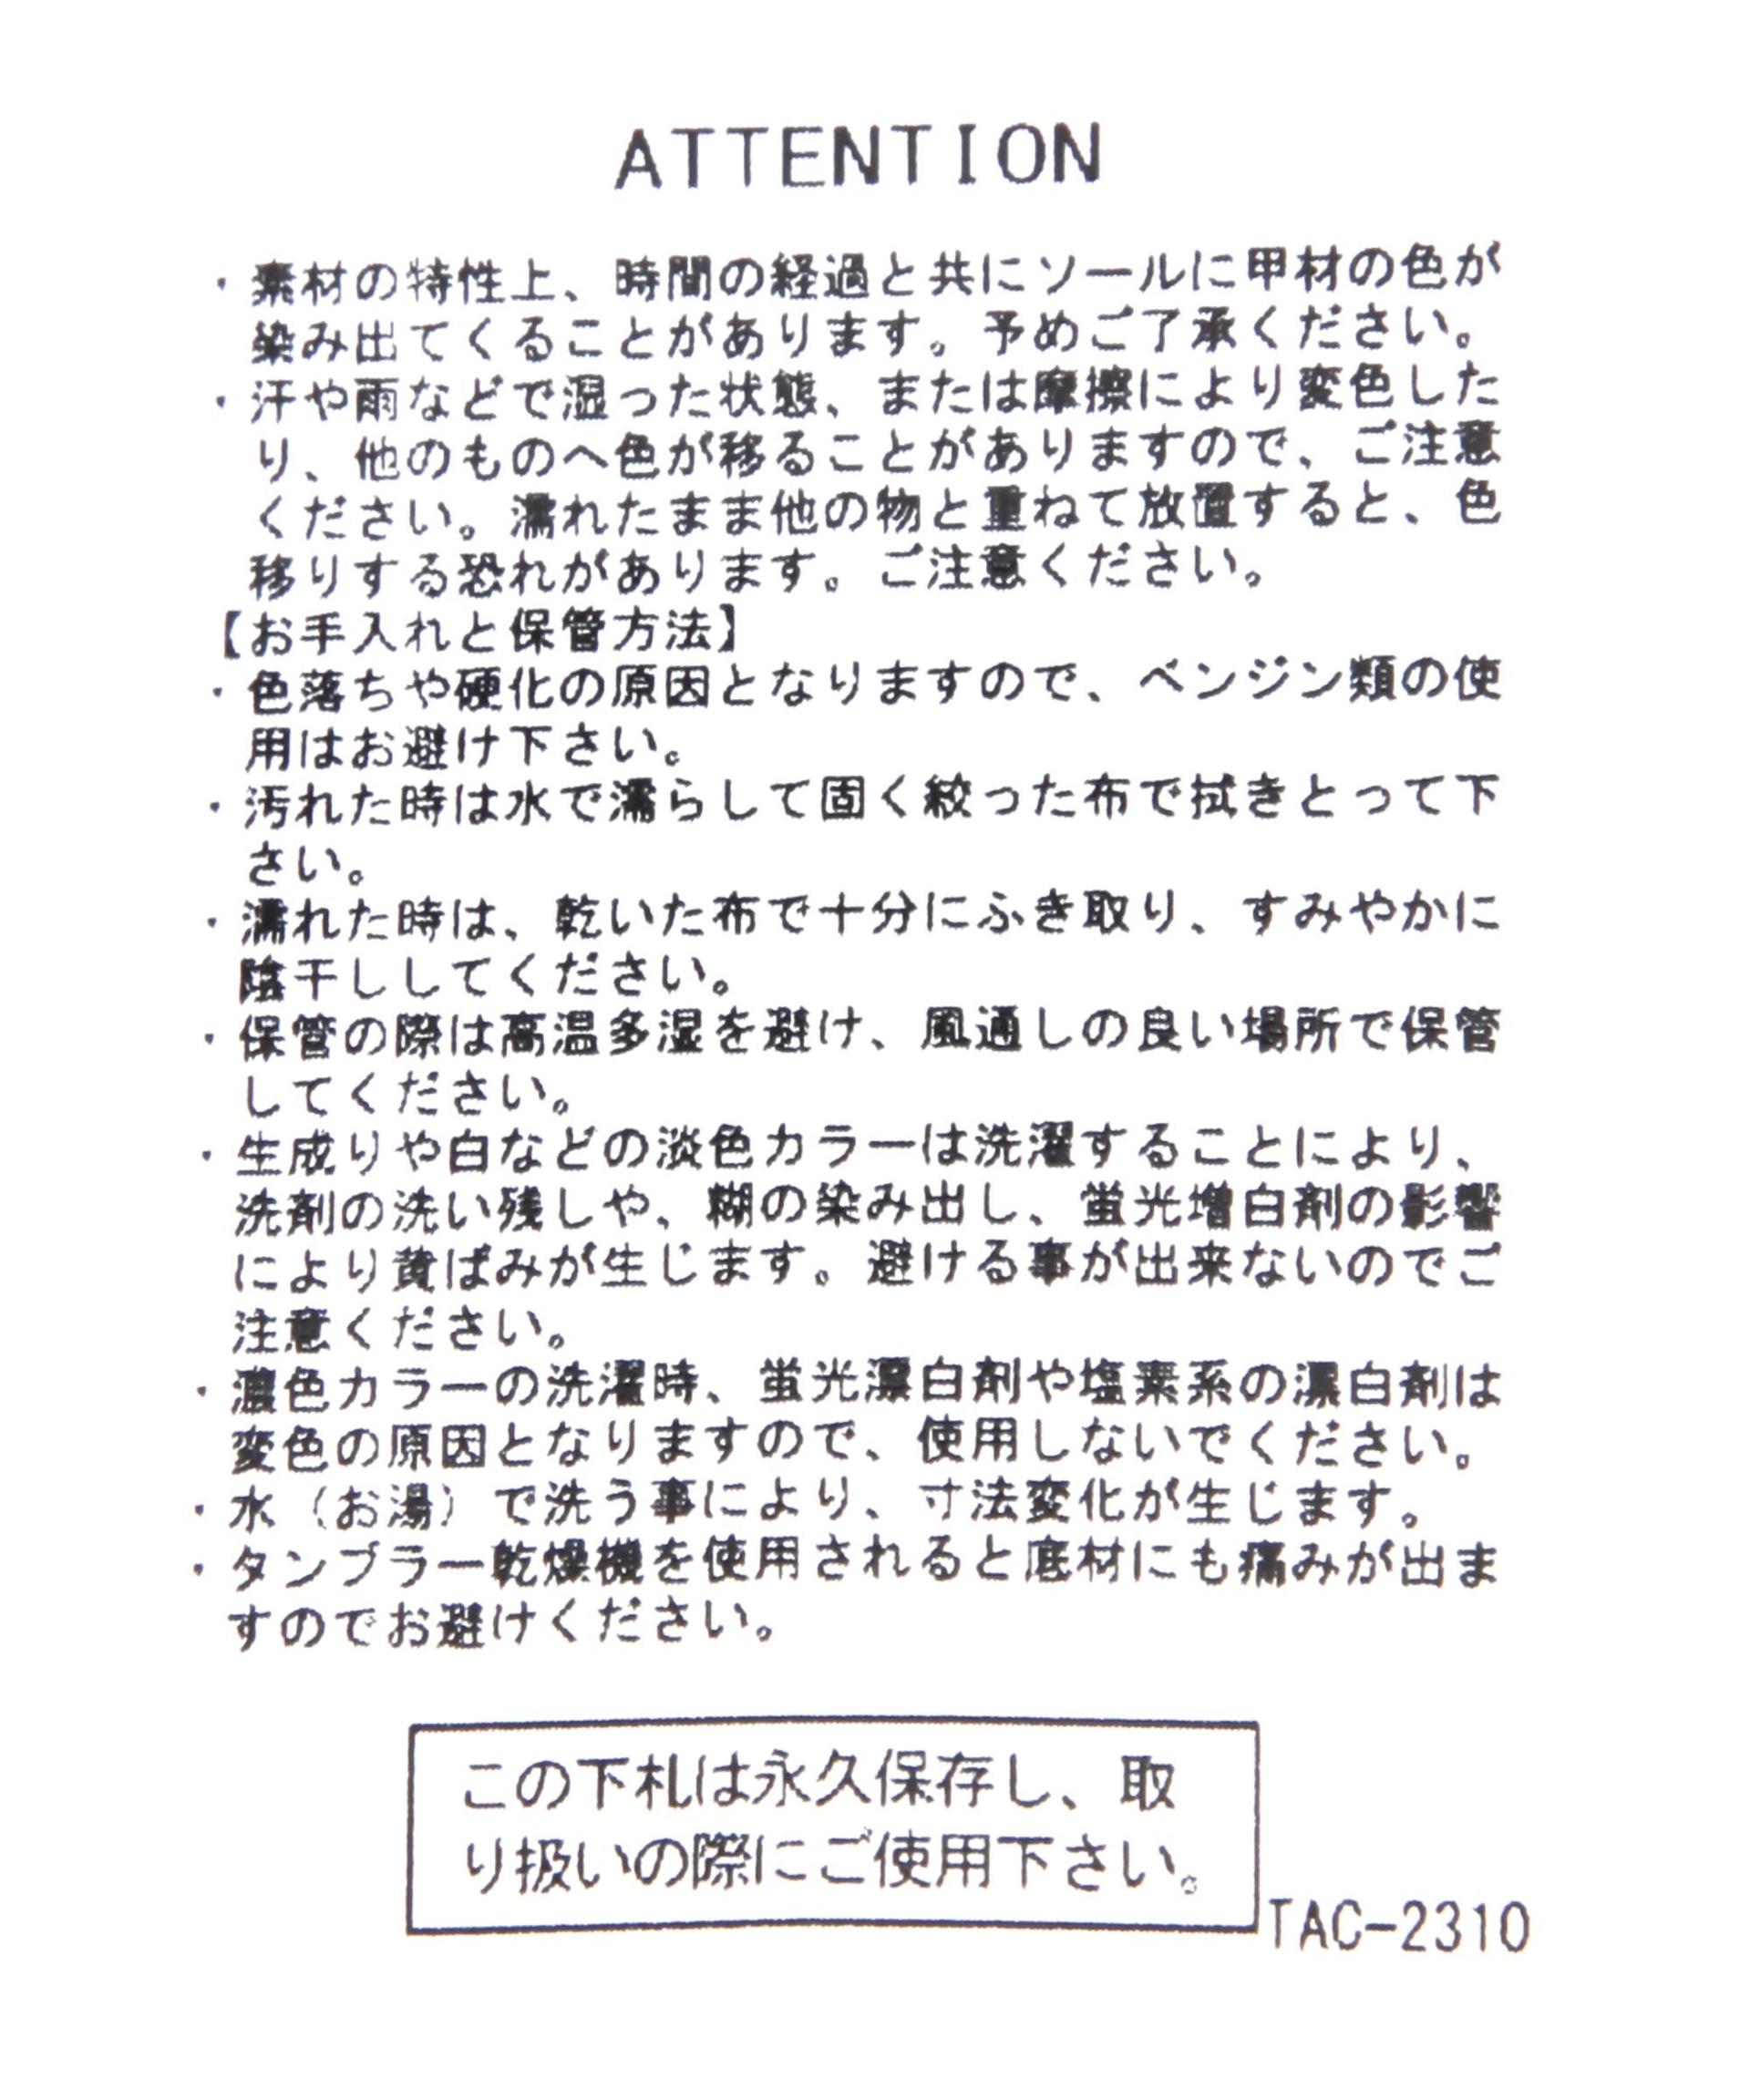 ATTENTION
・素材の特性上、時間の経過と共にソールに甲材の色が
染み出てくることがあります。予めご了承ください。
・汗や雨などで湿った状態、または摩擦により変色した
り、他のものへ色が移ることがありますので、ご注意
ください。濡れたまま他の物と重ねて放置すると、色
移りする恐れがあります。ご注意ください。
【お手入れと保管方法】
・色落ちや硬化の原因となりますので、ベンジン類の使
用はお避け下さい。
・汚れた時は水で濡らして固く絞った布で拭きとって下
さい。
・濡れた時は、乾いた布で十分にふき取り、すみやかに
陰干ししてください。
・保管の際は高温多湿を避け、風通しの良い場所で保管
してください。
・生成りや白などの淡色カラーは洗濯することにより、
洗剤の洗い残しや、糊の染み出し、蛍光増白剤の影響
により黄ばみが生じます。避ける事が出来ないのでご
注意ください。
・濃色カラーの洗濯時、蛍光漂白剤や塩素系の漂白剤は
変色の原因となりますので、使用しないでください。
・水（お湯）で洗う事により、寸法変化が生じます。
・タンブラー乾燥機を使用されると底材にも痛みが出ま
すのでお避けください。
この下札は永久保存し、取
り扱いの際にご使用下さい。
TAC-2310